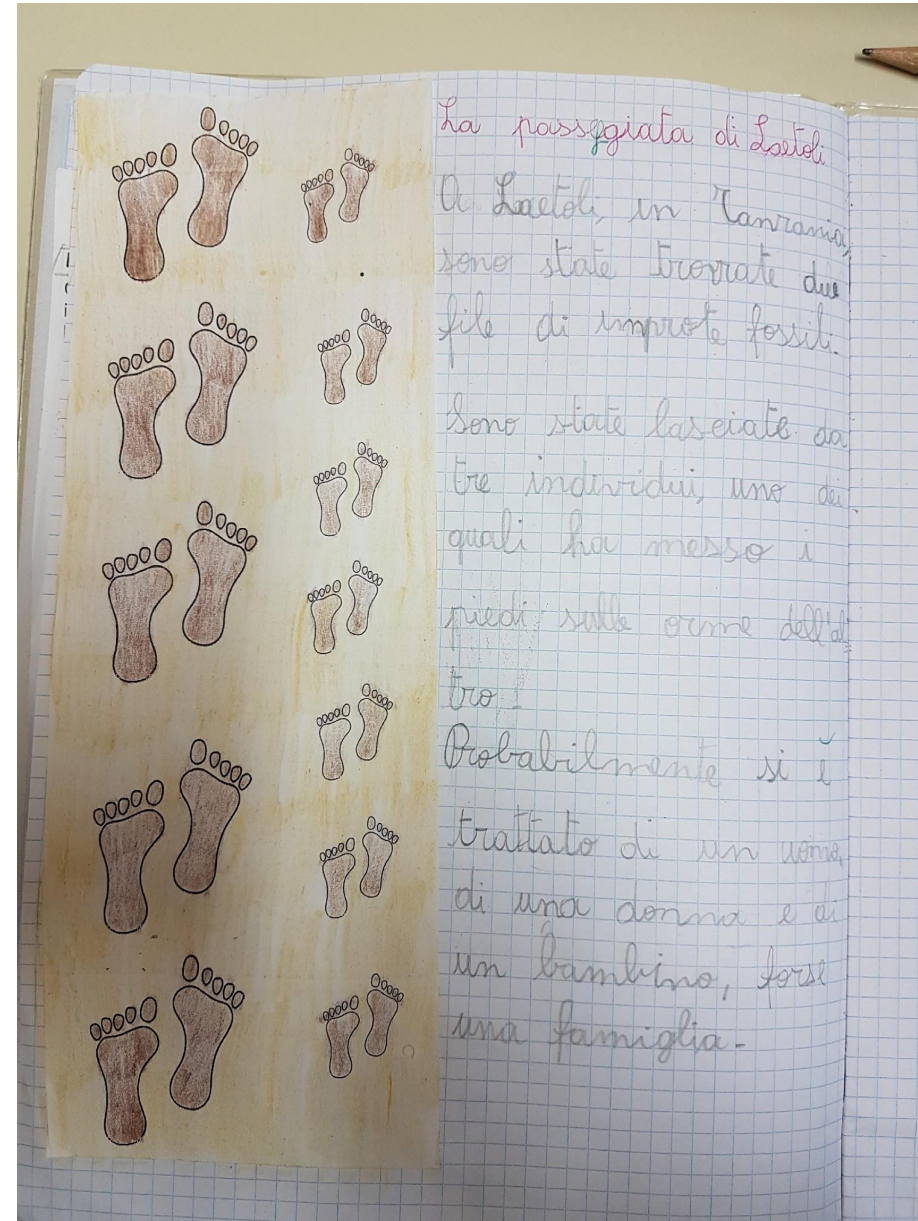 La passggiata di Laetoli
A Laetoli, in Tanzania,
sono state trovate due
file di improte fossili.
Sono state lasciate da
tre individui, uno dei
quali ha messo i
piedi sulle orme dell'al
tro.
Probabilmente si è
trattato di un uomo,
di una donna e di
un bambino, forse
una famiglia.